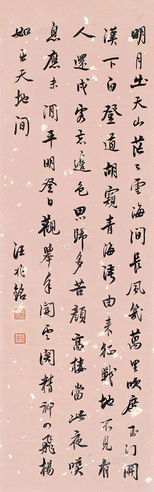 明月出天山茫々雲海間長風幾萬里吹度玉門關
漢下白登道胡窺青海灣由來征戰地不見有
人還戍客望邊色思歸多苦顏高樓當此夜嘆
息應未閒平明登日觀舉手開雲關精神四飛揚
如出天地間
汪兆銘